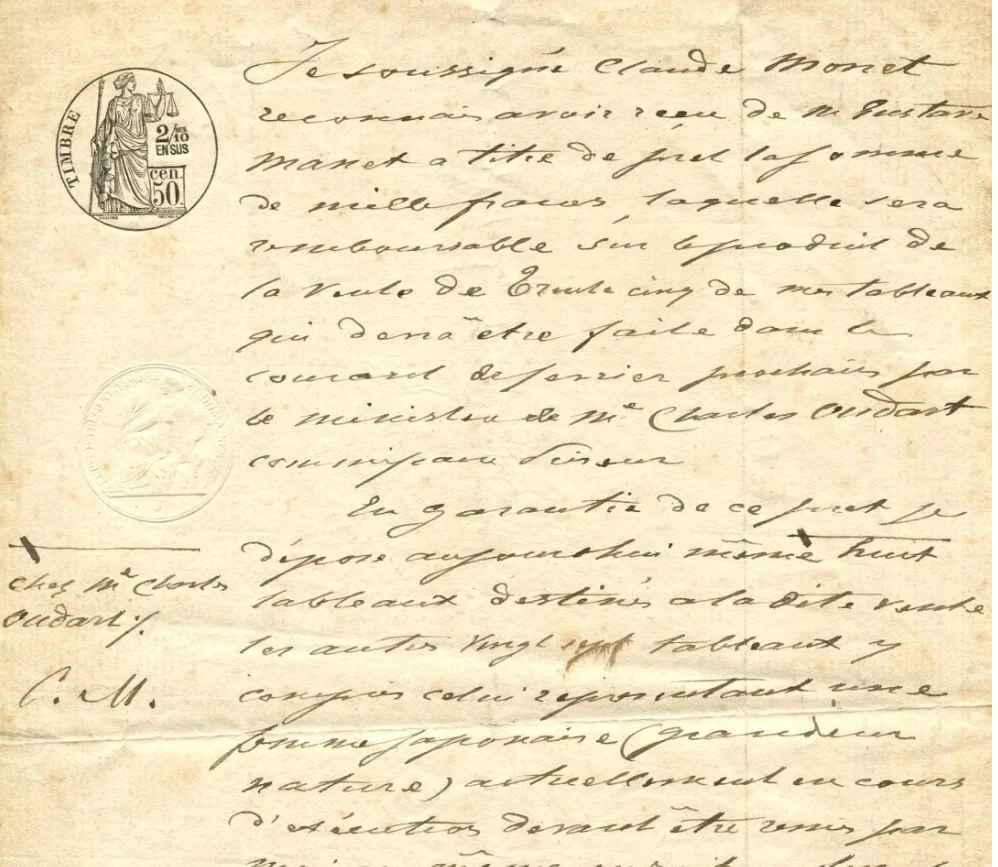 TIMBRE
2/10 EN SUS
cen. 50
Je soussigné Claude Monet
reconnais avoir reçu de M Gustave
Manet a titre de pret la somme
de mille francs, laquelle sera
remboursable sur le produit de
la vente de Trente cinq de mes tableaux
qui devra être faite dans le
courant de fevrier prochain par
le ministère de Me Charles Oudart
commissaire Priseur
En garantie de ce pret je
dépose aujourdhui même huit
chez Me Charles
Oudart /.
C. M.
tableaux destinés a la dite vente
les autres vingt sept tableaux y
compris celui representant une
femme japonaise (grandeur
nature) actuellement en cours
d'exécution devant être remis par